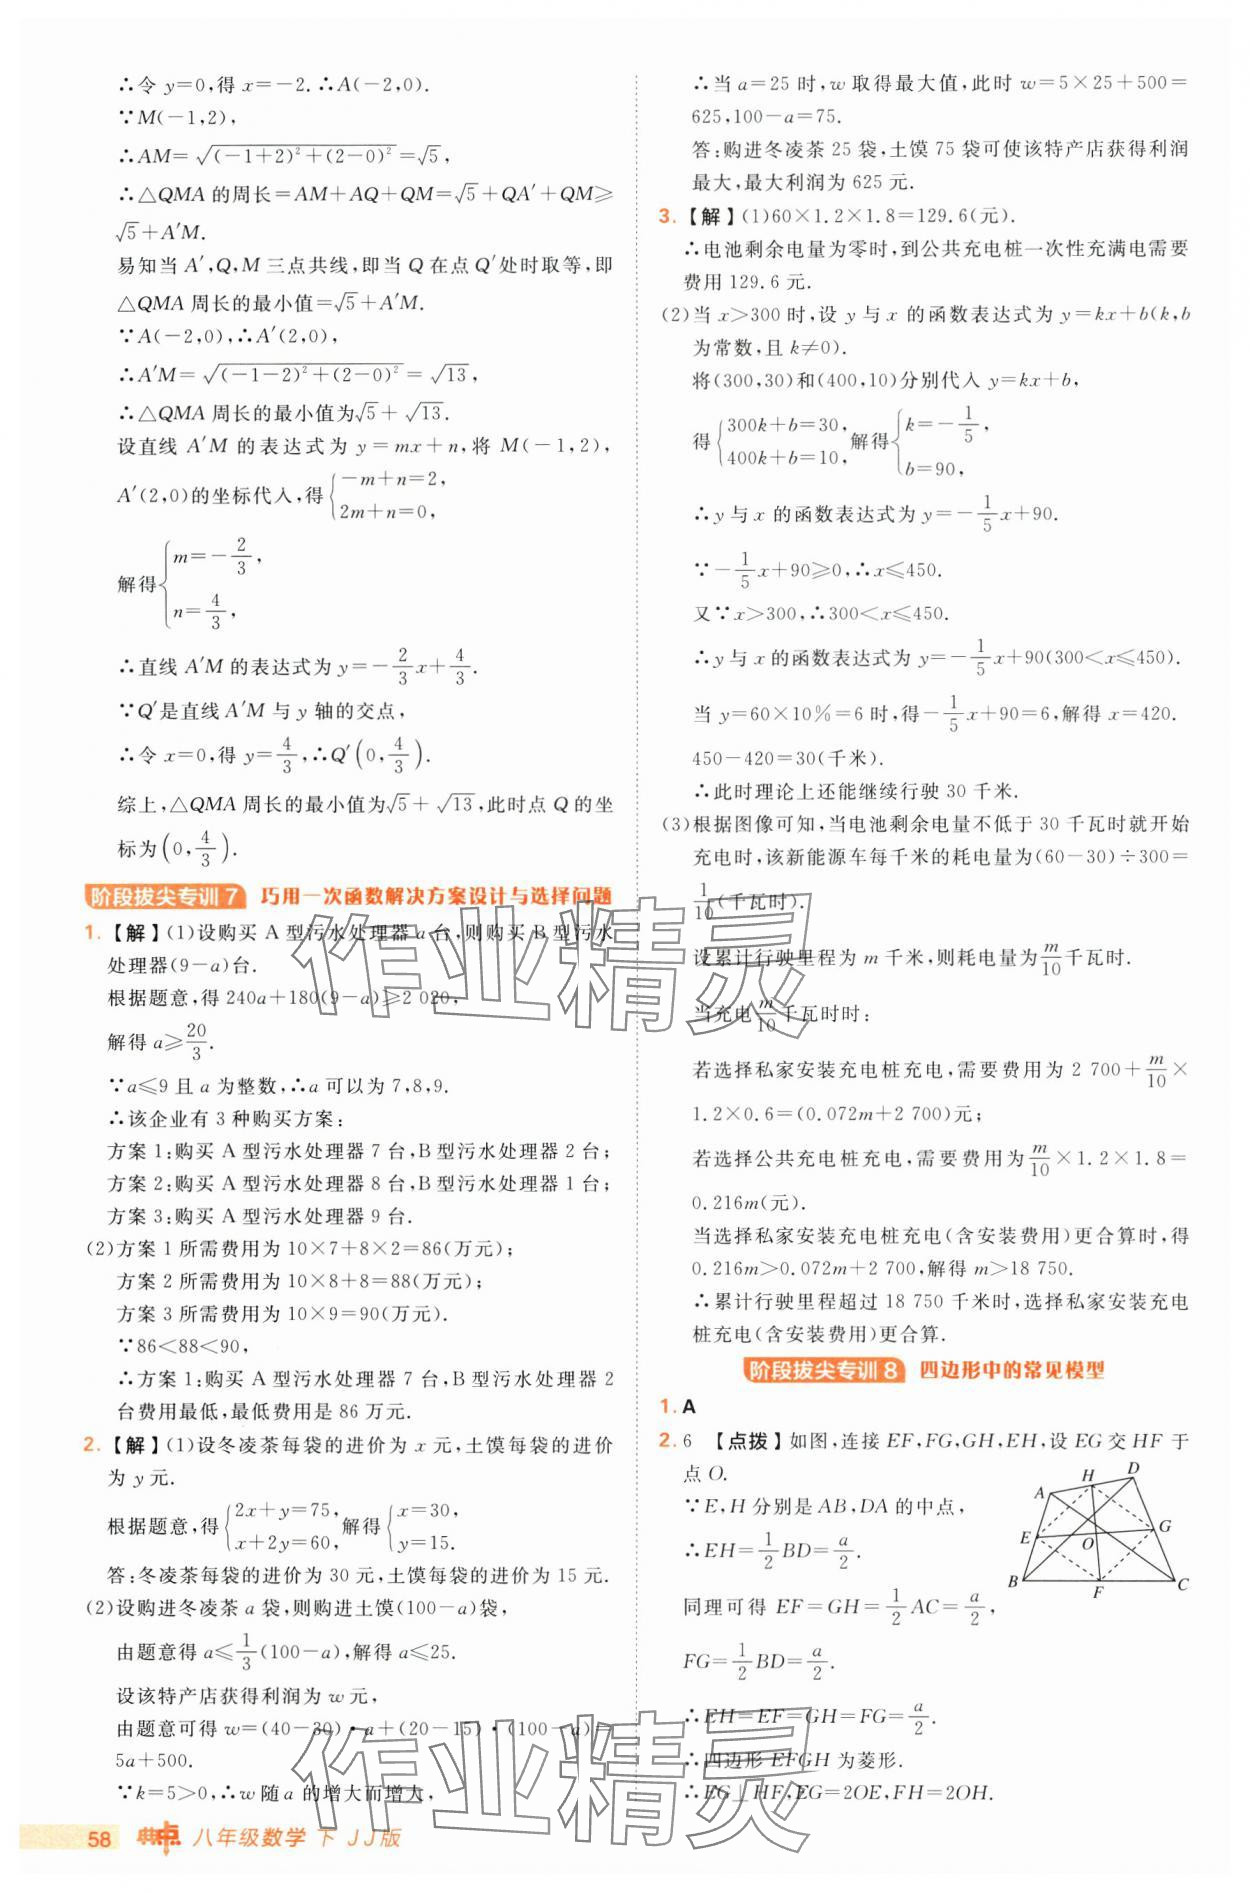 ∴令 y=0,得 x=-2.∴A(-2,0).
∵M(-1,2),
∴AM=√((-1+2)²+(2-0)²)=√5,
∴△QMA 的周长=AM+AQ+QM=√5+QA′+QM≥
√5+A′M.
易知当 A′,Q,M 三点共线,即当 Q 在点 Q′处时取等,即
△QMA 周长的最小值=√5+A′M.
∵A(-2,0),∴A′(2,0),
∴A′M=√((-1-2)²+(2-0)²)=√13,
∴△QMA 周长的最小值为√5+√13.
设直线 A′M 的表达式为 y=mx+n,将 M(-1,2),
A′(2,0)的坐标代入,得{-m+n=2,
2m+n=0,
解得{m=-2/3,
n=4/3,
∴直线 A′M 的表达式为 y=-2/3x+4/3.
∵Q′是直线 A′M 与 y 轴的交点,
∴令 x=0,得 y=4/3,∴Q′(0,4/3).
综上,△QMA 周长的最小值为√5+√13,此时点 Q 的坐
标为(0,4/3).
阶段拔尖专训 7 巧用一次函数解决方案设计与选择问题
1.【解】(1)设购买 A 型污水处理器 a 台,则购买 B 型污水
处理器(9-a)台.
根据题意,得 240a+180(9-a)≥2 020,
解得 a≥20/3.
∵a≤9 且 a 为整数,∴a 可以为 7,8,9.
∴该企业有 3 种购买方案:
方案 1:购买 A 型污水处理器 7 台,B 型污水处理器 2 台;
方案 2:购买 A 型污水处理器 8 台,B 型污水处理器 1 台;
方案 3:购买 A 型污水处理器 9 台.
(2)方案 1 所需费用为 10×7+8×2=86(万元);
方案 2 所需费用为 10×8+8=88(万元);
方案 3 所需费用为 10×9=90(万元).
∵86<88<90,
∴方案 1:购买 A 型污水处理器 7 台,B 型污水处理器 2
台费用最低,最低费用是 86 万元.
2.【解】(1)设冬凌茶每袋的进价为 x 元,土馍每袋的进价
为 y 元.
根据题意,得{2x+y=75, x+2y=60,解得{x=30, y=15.
答:冬凌茶每袋的进价为 30 元,土馍每袋的进价为 15 元.
(2)设购进冬凌茶 a 袋,则购进土馍(100-a)袋,
由题意得 a≤1/3(100-a),解得 a≤25.
设该特产店获得利润为 w 元,
由题意可得 w=(40-30)·a+(20-15)·(100-a)=
5a+500.
∵k=5>0,∴w 随 a 的增大而增大,
58 典点 八年级数学 下 JJ版
∴当 a=25 时,w 取得最大值,此时 w=5×25+500=
625,100-a=75.
答:购进冬凌茶 25 袋,土馍 75 袋可使该特产店获得利润
最大,最大利润为 625 元.
3.【解】(1)60×1.2×1.8=129.6(元).
∴电池剩余电量为零时,到公共充电桩一次性充满电需要
费用 129.6 元.
(2)当 x>300 时,设 y 与 x 的函数表达式为 y=kx+b(k,b
为常数,且 k≠0).
将(300,30)和(400,10)分别代入 y=kx+b,
得{300k+b=30, 400k+b=10,解得{k=-1/5, b=90,
∴y 与 x 的函数表达式为 y=-1/5x+90.
∵-1/5x+90≥0,∴x≤450.
又∵x>300,∴300<x≤450.
∴y 与 x 的函数表达式为 y=-1/5x+90(300<x≤450).
当 y=60×10%=6 时,得-1/5x+90=6,解得 x=420.
450-420=30(千米).
∴此时理论上还能继续行驶 30 千米.
(3)根据图像可知,当电池剩余电量不低于 30 千瓦时就开始
充电时,该新能源车每千米的耗电量为(60-30)÷300=
1/10(千瓦时).
设累计行驶里程为 m 千米,则耗电量为m/10千瓦时.
当充电m/10千瓦时时:
若选择私家安装充电桩充电,需要费用为 2 700+m/10×
1.2×0.6=(0.072m+2 700)元;
若选择公共充电桩充电,需要费用为m/10×1.2×1.8=
0.216m(元).
当选择私家安装充电桩充电(含安装费用)更合算时,得
0.216m>0.072m+2 700,解得 m>18 750.
∴累计行驶里程超过 18 750 千米时,选择私家安装充电
桩充电(含安装费用)更合算.
阶段拔尖专训 8 四边形中的常见模型
1. A
2. 6 【点拨】如图,连接 EF,FG,GH,EH,设 EG 交 HF 于
点 O.
∵E,H 分别是 AB,DA 的中点,
∴EH=1/2BD=a/2.
同理可得 EF=GH=1/2AC=a/2,
FG=1/2BD=a/2.
∴EH=EF=GH=FG=a/2.
∴四边形 EFGH 为菱形.
∴EG⊥HF,EG=2OE,FH=2OH.
A
H
D
E
O
G
B
F
C
作业精灵
作业精灵